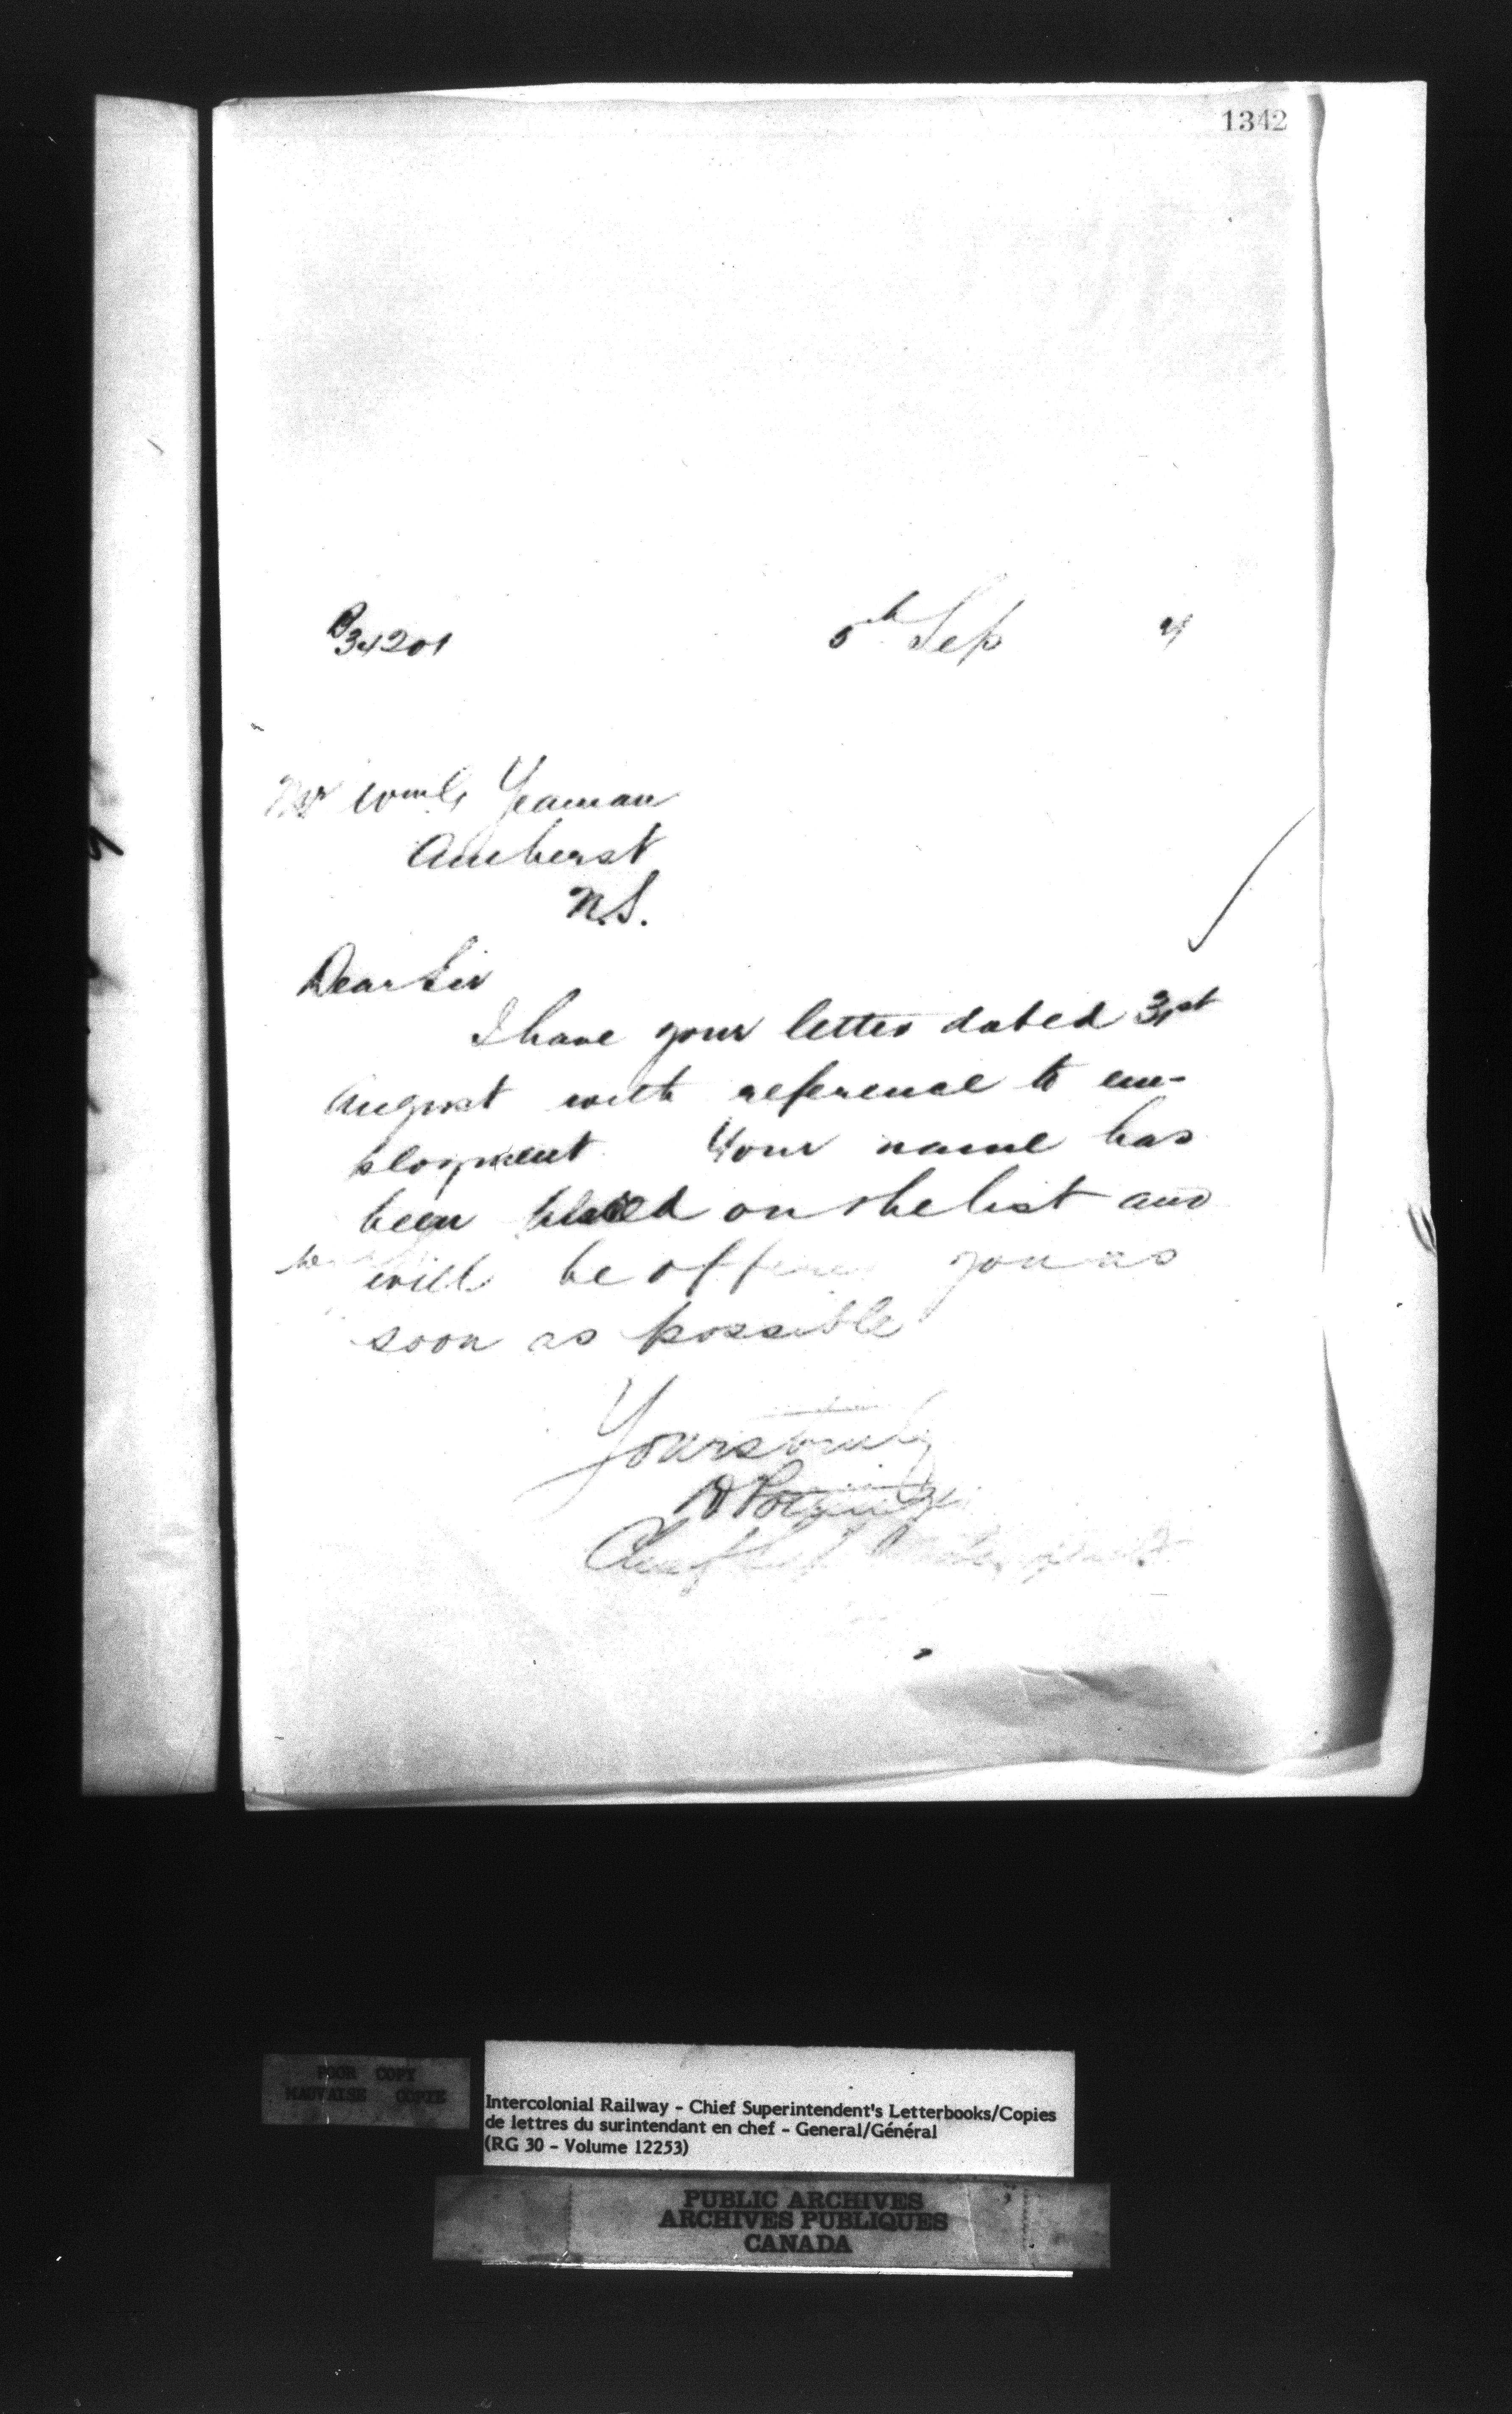 1342
34201
5th Sep 4
Mr Wm Yeaman
Amherst
N.S.
Dear Sir
I have your letter dated 31st
August with reference to em-
ployment Your name has
been placed on the list and
will be offered you as
soon as possible
Yours truly
D Pottinger
Chief Superintendent
POOR COPY
MAUVAISE COPIE
Intercolonial Railway - Chief Superintendent's Letterbooks/Copies
de lettres du surintendant en chef - General/Général
(RG 30 - Volume 12253)
PUBLIC ARCHIVES
ARCHIVES PUBLIQUES
CANADA